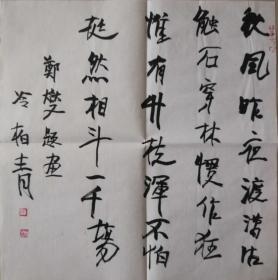 秋风昨夜渡潇湘
触石穿林惯作狂
惟有竹枝浑不怕
挺然相斗一千场
郑燮题画
冷柏青